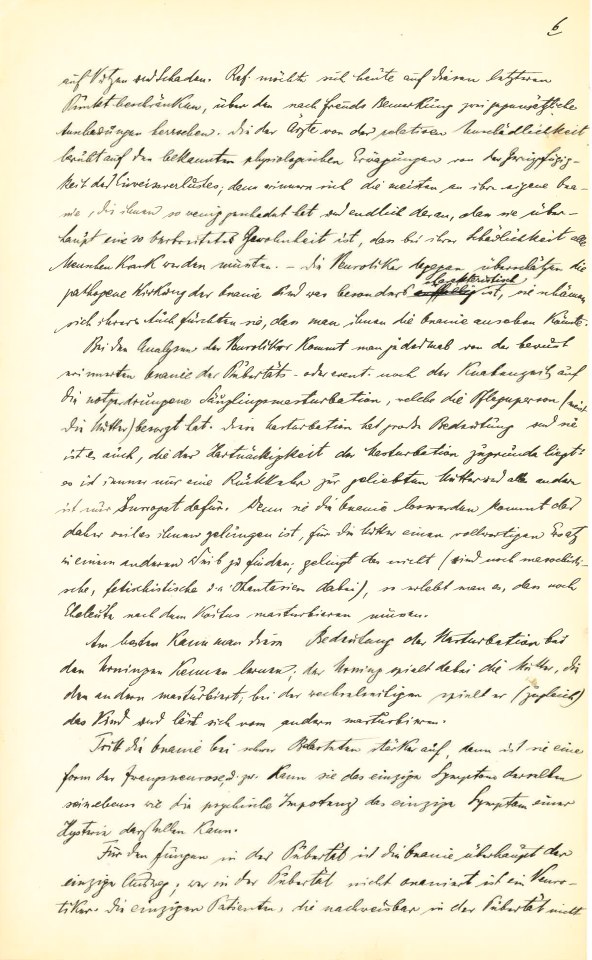 6
auf Nutzen und Schaden. Ref. möchte sich heute auf diesen letzteren
Punkt beschränken, über den nach Freuds Bemerkung zwei gegensätzliche
Anschauungen herrschen. Die der Ärzte von der relativen Unschädlichkeit
beruht auf den bekannten physiologischen Erwägungen von der Geringfügig-
keit des Eiweissverlustes; dann erinnern sich die meisten an ihre eigene Ona-
nie, die ihnen so wenig geschadet hat und endlich daran, dass sie über-
haupt eine so verbreitete Gewohnheit ist, dass bei ihrer Schädlichkeit alle
Menschen krank werden müssten. – Die Neurotiker dagegen überschätzen die
pathogene Wirkung der Onanie und was besonders charakteristisch ist, sie schämen
sich ihrer. Auch fürchten sie, dass man ihnen die Onanie ansehen könnte.
Bei den Analysen der Neurotiker kommt man jedesmal von der bewusst
erinnerten Onanie der Pubertäts- oder event. noch der Knabenzeit auf
die notgedrungene Säuglingsmasturbation, welche die Pflegeperson (meist
die Mutter) besorgt hat. Diese Masturbation hat große Bedeutung und sie
ist es auch, die der Hartnäckigkeit der Masturbation zugrunde liegt:
es ist immer nur eine Rückkehr zur geliebten Mutter und alles andere
ist nur Surrogat dafür. Denn sie die Onanie loswerden kommt das
daher weil es ihnen gelungen ist, für die Mutter einen vollwertigen Ersatz
in einem anderen Weib zu finden; gelingt das nicht (sind noch masochisti-
sche, fetischistische Phantasien dabei), so erlebt man es, dass noch
Eheleute nach dem Koitus masturbieren müssen.
Am besten kann man diese Bedeutung der Masturbation bei
den Urningen kennen lernen; der Urning spielt dabei die Mutter, die
den andern masturbiert; bei der wechselseitigen spielt er (zugleich)
das Kind und lässt sich vom andern masturbieren.
Tritt die Onanie bei schwer Belasteten stärker auf, dann ist sie eine
Form der Zwangsneurose, u. zw. kann sie das einzige Symptom derselben
sein ebenso wie die psychische Impotenz das einzige Symptom einer
Hysterie darstellen kann.
Für den Jungen in der Pubertät ist die Onanie überhaupt der
einzige Ausweg; wer in der Pubertät nicht onaniert ist ein Neuro-
tiker. Die einzigen Patienten, die nachweisbar in der Pubertät nicht